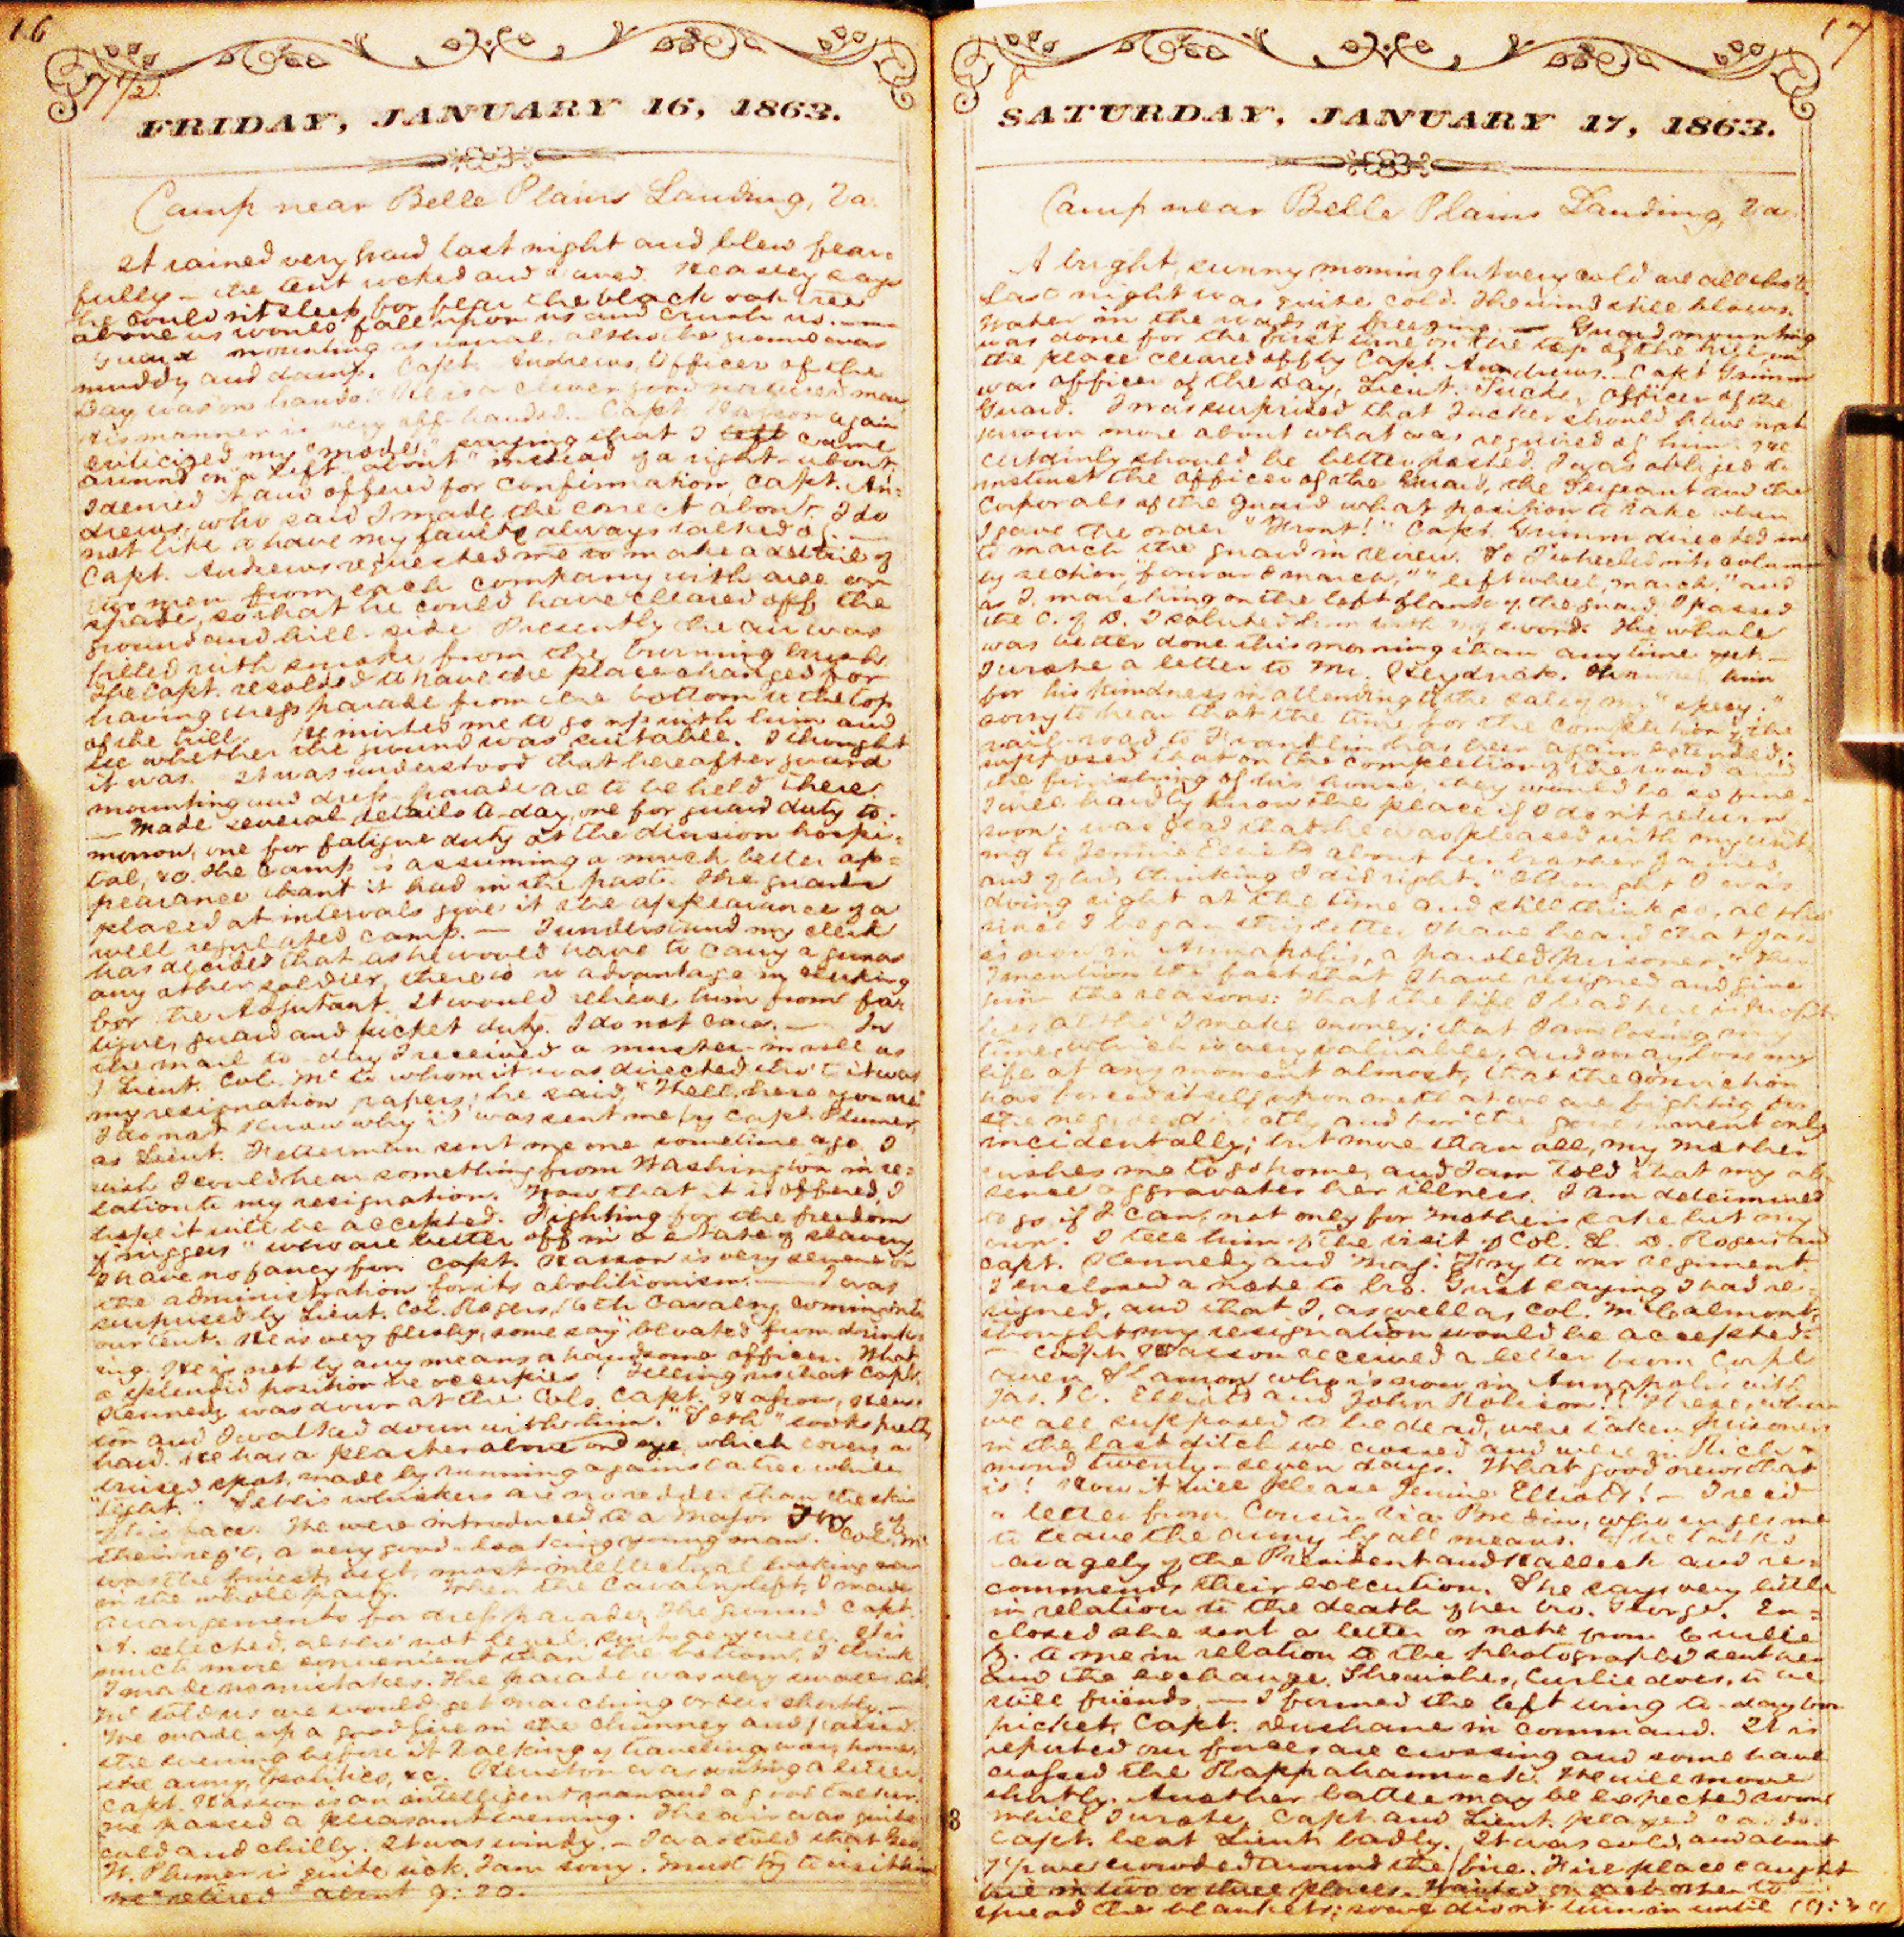 16
7 1/2
FRIDAY, JANUARY 16, 1863.
Camp near Belle Plains Landing, Va.
It rained very hard last night and blew fear=
fully — the tent rocked and waved. Heasley says
he couldn't sleep for fear the black oak tree
above us would fall upon us and crush us. —
Guard mounting as usual, altho' the ground was
muddy and damp. Capt. Andrews, Officer of the
Day was on hand. He is a clever good natured man
His manner is very off-handed. Capt. Wasson again
criticized my "mode," saying that I left came
around on "a left about" instead of a right-about.
I denied it and offered for confirmation, Capt. An=
drews, who said I made the correct about. I do
not like to have my faults always talked of. —
Capt. Andrews requested me to make a detail of
two men from each company with axe or
spade, so that he could have cleared off, the
ground and hill-side. Presently the air was
filled with smoke from the burning brush.
The Capt. resolved to have the place changed for
having dress parade from the bottom to the top
of the hill. He invited me to go up with him and
see whether the ground was suitable. I thought
it was. It was understood that hereafter guard
mounting and dress parade are to be held there.
— Made several details to-day, one for guard duty to-
morrow, one for fatigue duty at the division hospi=
tal, &c. The camp is assuming a much better ap=
pearance than it had in the past. The guards
placed at intervals give it the appearance of a
well regulated camp. — I understand my clerk
has decided that as he would have to carry a gun as
any other soldier, there is no advantage in clerking
for the Adjutant. It would relieve him from fa=
tigue, guard and picket duty. I do not care. — In
the mail to-day I received a muster-in roll as
1 Lieut. Col. Mc to whom it was directed tho't it was
my resignation papers; he said, "Well, here you are"
I do not know why it was sent me by Capt. Plumer,
as Lieut. Fetterman sent me one sometime ago. I
wish I could hear something from Washington in re=
lation to my resignation. Now that it is offered, I
hope it will be accepted. Fighting for the freedom
of "niggers" who are better off in a state of slavery
I have no fancy for. Capt. Wasson is very severe on
the administration for its abolitionism. — I was
surprised by Lieut. Col. Rogers, 16th Cavalry coming into
our tent. He is very fleshy, some say bloated from drink=
ing. He is not by any means a handsome officer. What
a splendid position he occupies! Telling us that Capt.
Kennedy was down at the Cols. Capt. Wasson,
and I walked down with him. "Seth" looks pretty
hard. He has a plaster above one eye, which covers a
bruised spot, made by running against a tree while
"tight." Seth's whiskers are no redder than the skin
of his face. We were introduced to a Major Fry of
their reg't, a very good-looking young man. Col. Mc
was the finest, best, most intellectual looking man
in the whole party. When the Cavalry left, I made
arrangements for dress parade. The ground Capt.
A. selected, altho' not level, suits very well. It is
much more convenient than the bottom, I think
I made no mistakes. The parade was very small. Col.
Mc told us we would get marching orders shortly. —
We made up a good fire in the chimney and passed
the evening before it talking of traveling, war, home,
the army, politics, &c. was writing a letter.
Capt. Wasson is an intelligent man and a good talker.
We passed a pleasant evening. The air was quite
cold and chilly. It was windy. — I was told that Geo.
W. Plumer is quite sick. I am sorry. Must try to visit him
We "retired" about 9:20.
17
8
SATURDAY, JANUARY 17, 1863.
Camp near Belle Plains Landing, Va.
A bright, sunny morning but very cold we all tho't.
Last night was quite cold. The wind still blows.
Water in the is freezing. — Guard mounting
was done for the first time on the top of the hill on
the place cleared off by Capt. Andrews. Capt Grimm
was officer of the Day, Lieut. Tucker officer of the
Guard. I was surprised that Tucker should have not
known more about what was required of him. He
certainly should be better posted. I was obliged to
instruct the officer of the Guard, the Sergeant and the
Corporals of the guard what position to take when
I gave the order "Front!" Capt. Grimm directed me
to march the guard in review. So I wheeled into column
by section, "forward march," "left wheel, march," and
as I, marching on the left flank of the guard passed
the O. of D. I saluted him with my sword. The whole
was better done this morning than anytime yet. —
I wrote a letter to Mr. Heydrick. Thanked him
for his kindness in attending to the sale of my
sorry to hear that the time for the completion of the
rail-road to Franklin has been again extended;
supposed that on the completion of the road and
the finishing of his house, they would be so fine
I will hardly know the place if I don't return
soon; was glad that he was pleased with my writ-
ing to Jennie Elliott about her brother James,
and of his "thinking I did right." I thought I was
doing right at the time and still think so, altho'
since I began this letter I have heard that Jas.
is now in Annapolis, a paroled prisoner. Then
I mention the fact that I have resigned and give
him the reasons: that the life I lead here is profit-
less altho' I make money; that I am losing my
time, which is very valuable, and may lose my
life at any moment almost; that the conviction
has forced itself upon me that we are fighting for
the negro directly and for the government only
incidentally; but more than all, my mother
wishes me to go home, and I am told that my ab-
sence aggravates her illness. I am determined
to go if I can, not only for Mother's sake but my
own. I tell him of the visit of Col. L. D. Rogers and
Capt. Kennedy and Maj. Fry to our regiment
I enclosed a note to bro. just saying I had re-
signed, and that I, as well as, Col. McCalmont,
thought my resignation would be accepted.
— Capt. Wasson received a letter from Corpl.
Owen who is now in Annapolis with
Jas. K. Elliott and John Robison! These, whom
we all supposed to be dead, were taken prisoners
in the last ditch we crossed and were in Rich-
mond twenty-seven days. What good news that
is! How it will please Jennie Elliott! — I rec'd
a letter from Cousin Bredin, who urges me
to leave the army by all means. She talks
savagely of the President and Halleck and re=
commends their execution. She says very little
in relation to the death of her bro. George. En=
closed she sent a letter or note from Curlie
B. to me in relation to the photographs sent her
and the exchange. She wishes, Curlie does, to be
still friends. — I formed the left wing to-day for
picket, Capt. Dushane in command. It is
reported our forces are crossing and some have
crossed the Rappahannock. We will move
shortly. Another battle may be expected soon.
While I wrote, Capt. and Lieut. played cards.
Capt. beat Lieut. badly. It was cold, and about
7 P. we crowded around the fire. Fire place caught
fire in two or three places. Waited on each other to
spread the blankets; some didn't turn in until 10:30
8